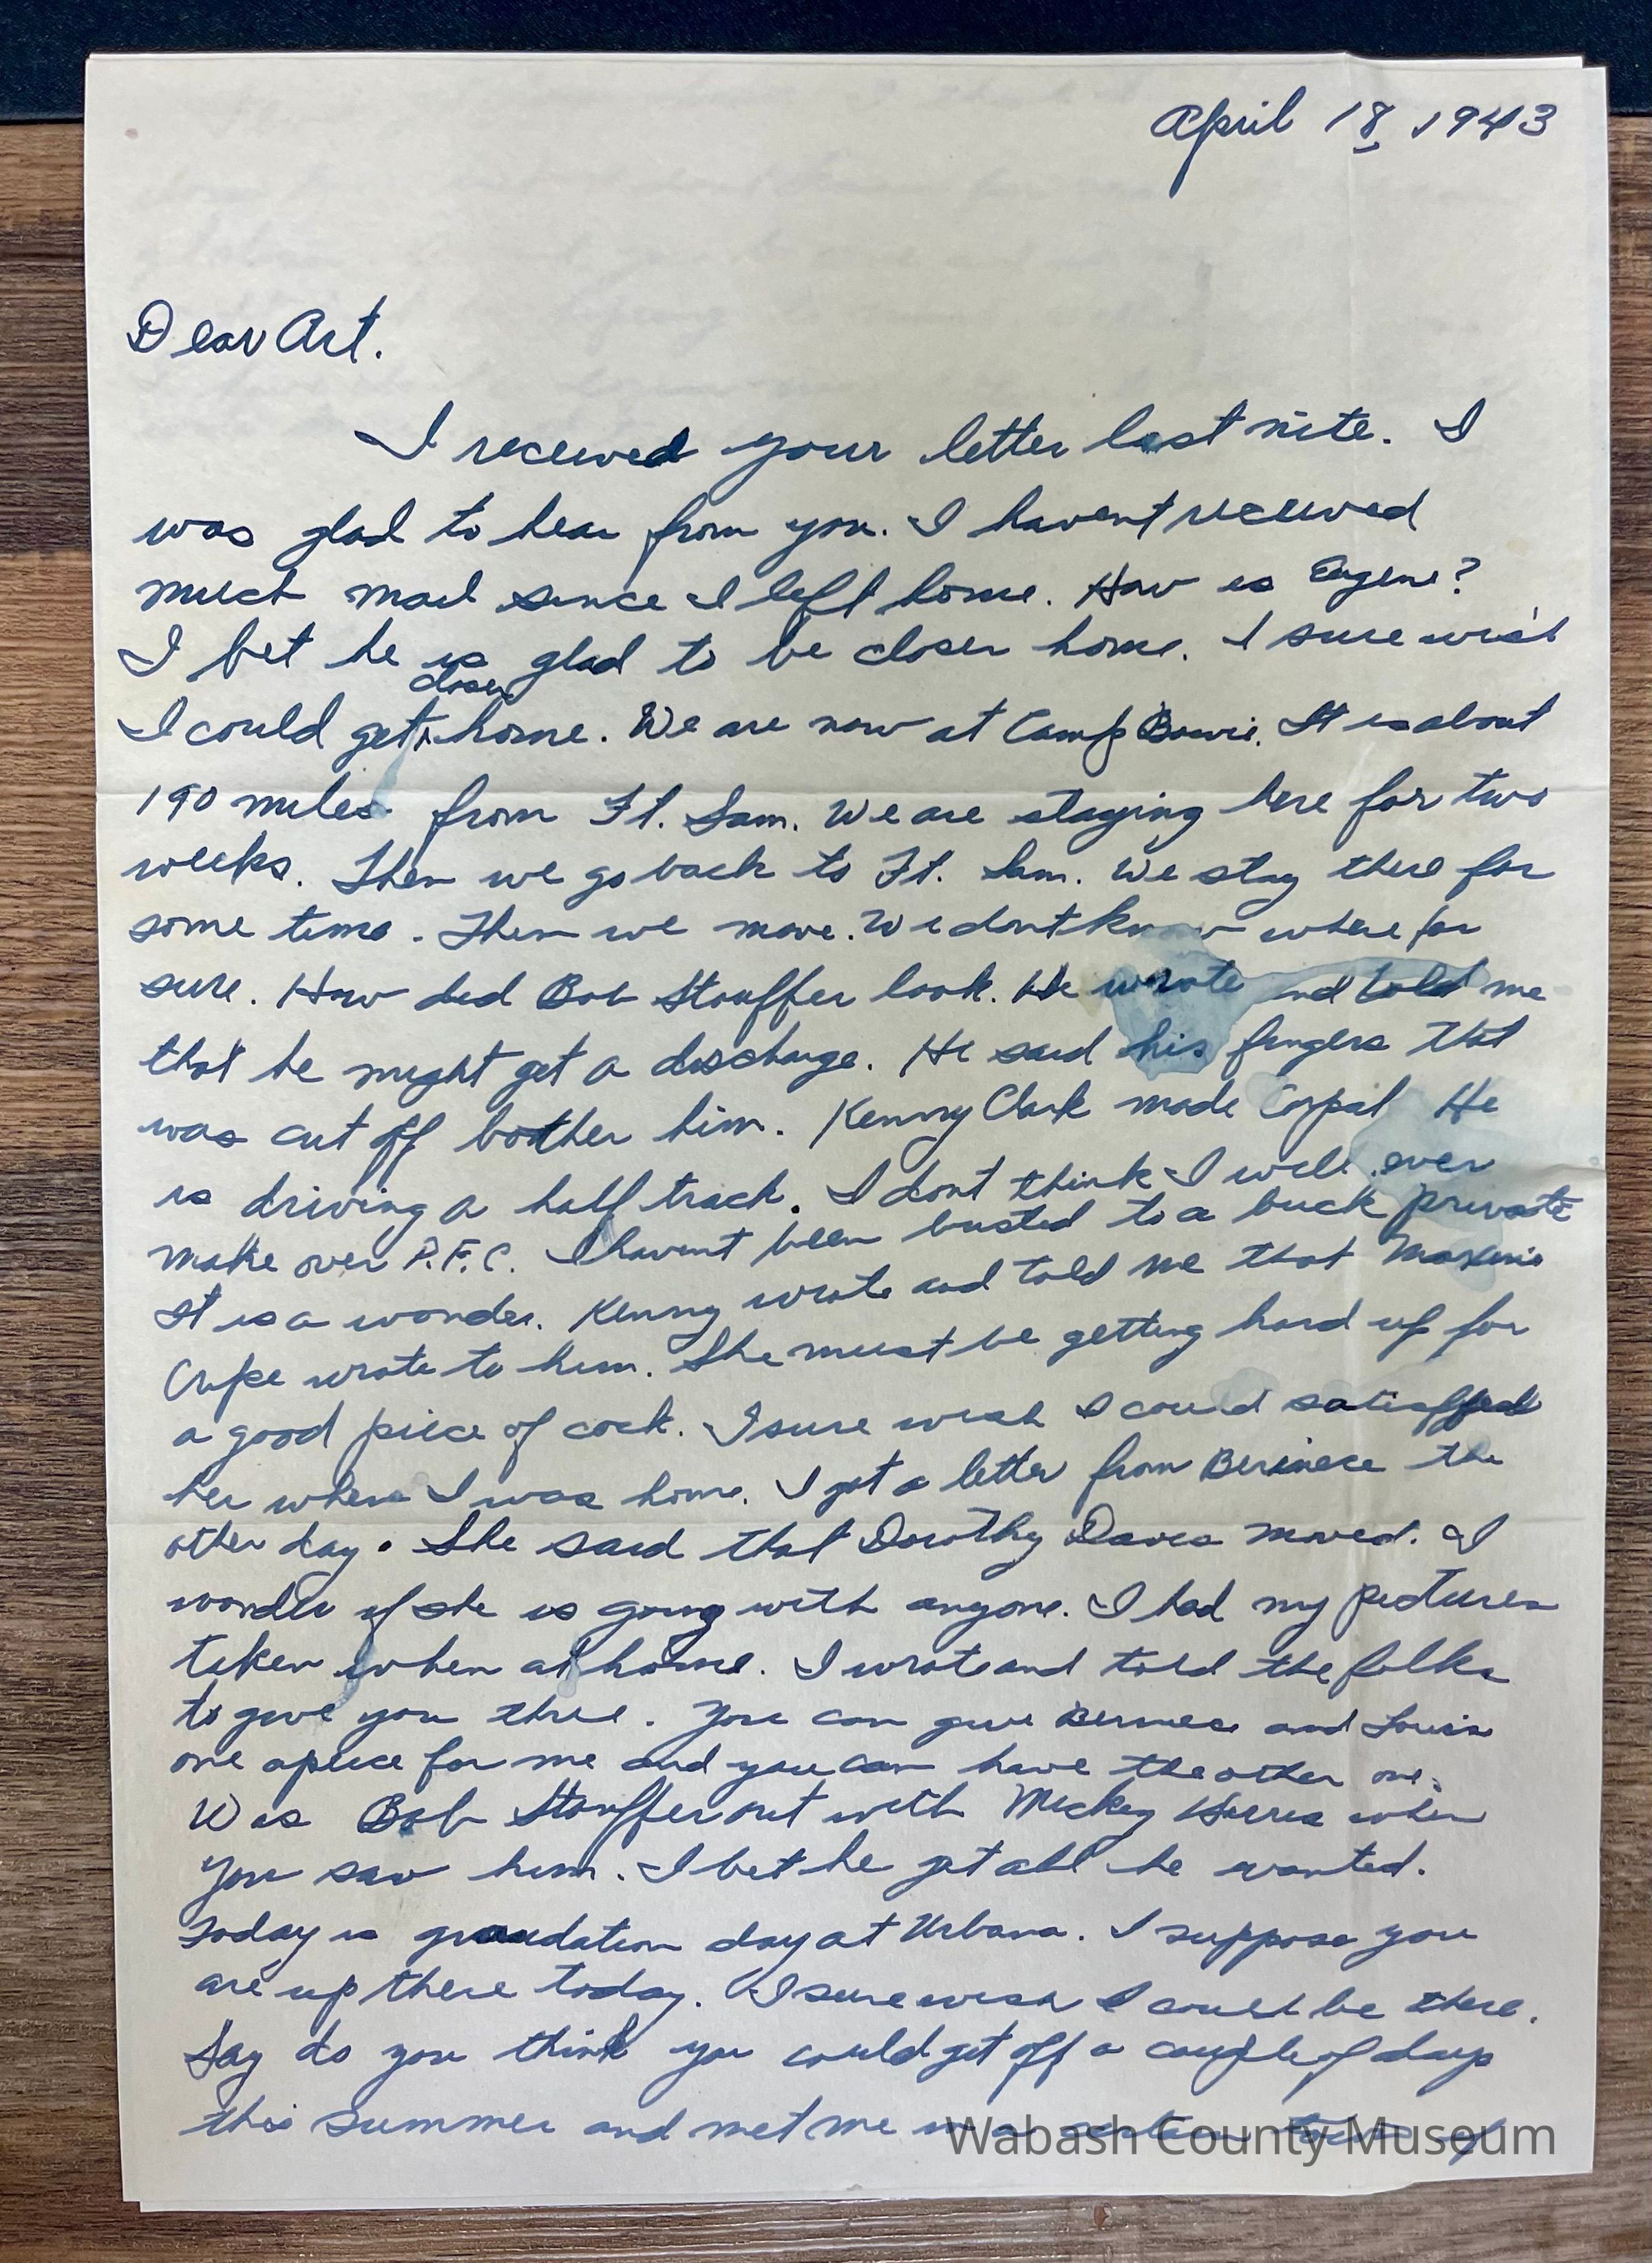 April 18, 1943
Dear Art.
I received your letter last nite. I
was glad to hear from you. I havent received
much mail since I left home. How is Eugene?
I bet he is glad to be closer home. I sure wish
closer
I could get home. We are now at Camp Bowie. It is about
190 miles from Ft. Sam. We are staying here for two
weeks. Then we go back to Ft. Sam. We stay there for
some time. Then we move. We dont know where for
sure. How did Bob Stouffer look. He wrote and told me
that he might get a discharge. He said his fingers that
was cut off bother him. Kenny Clark made Corpal He
is driving a half track. I dont think I will ever
make over P.F.C. I havent been busted to a buck private
It is a wonder. Kenny wrote and told me that Maxine
Cripe wrote to him. She must be getting hard up for
a good piece of cock. I sure wish I could satisffed
her when I was home. I got a letter from Berinece the
other day. She said that Dorothy Daves moved. I
wonder if she is going with anyone. I had my pictures
taken when at home. I wrote and told the folks
to give you three. You can give Berniece and Louis
one apiece for me and you can have the other one.
Was Bob Stouffer out with Mickey when
you saw him. I bet he got all he wanted.
Today is graudation day at Urbana. I suppose you
are up there today. I sure wish I could be there.
Say do you think you could get off a couple of days
this summer and met me in a
Wabash County Museum